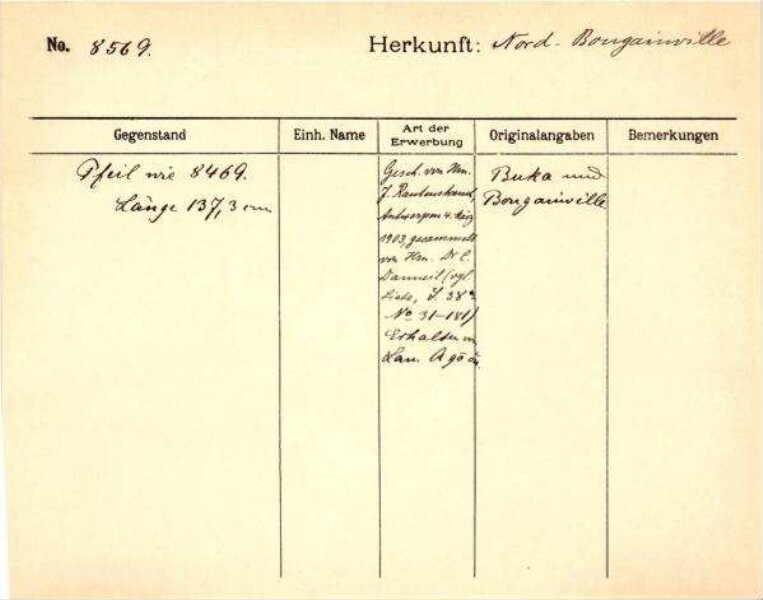 No. 8569. Herkunft: Nord-Bougainville
Gegenstand Einh. Name Art der Erwerbung Originalangaben Bemerkungen
Pfeil wie 8469.
Länge 137,3 cm
Gesch. von Hrn.
J. Rautenstrauch,
Antwerpen 4. März
1903, gesammelt
von Hrn. Dr C.
Danneil (vgl.
Liste, S. 38
No 31-181)
Erhalten
Lau.
Buka und
Bougainville